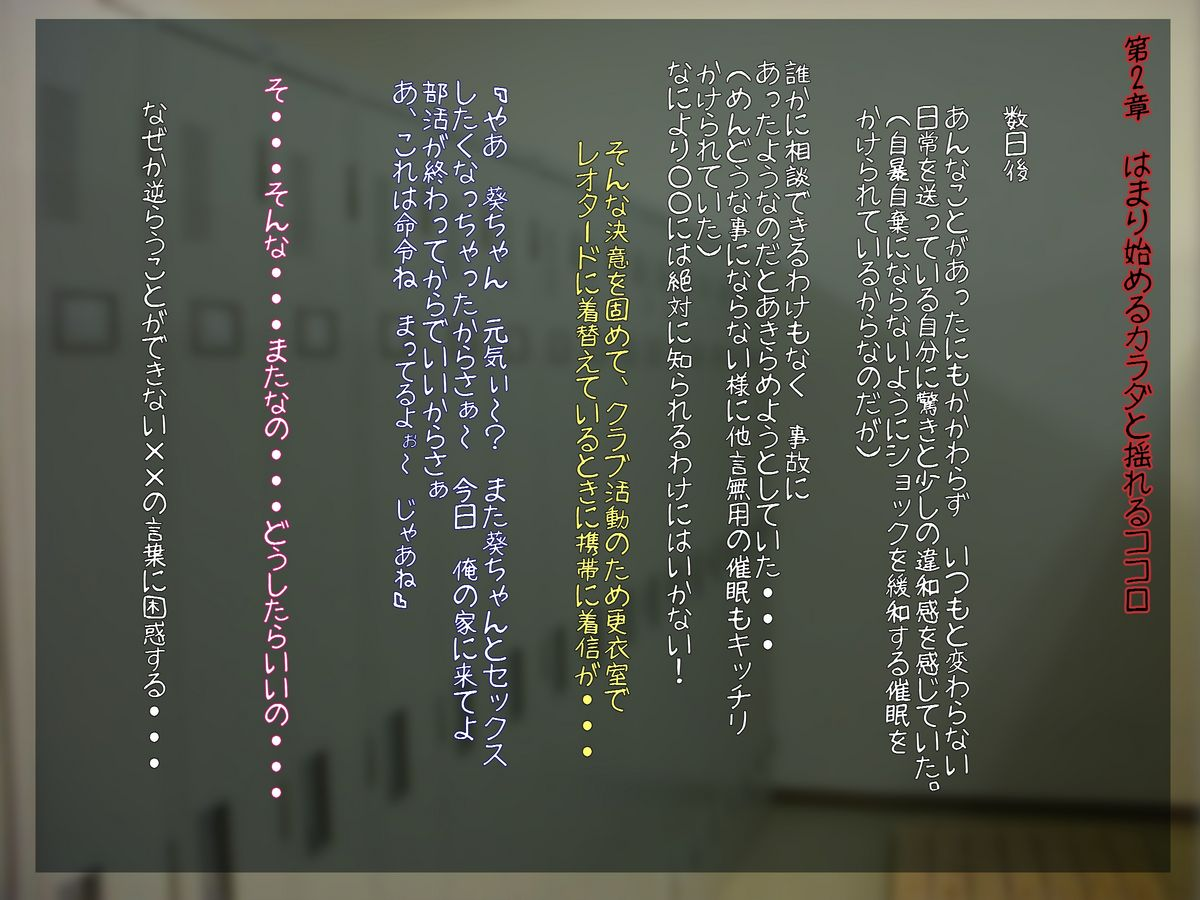 第2章　はまり始めるカラダと揺れるココロ
数日後
あんなことがあったにもかかわらず　いつもと変わらない
日常を送っている自分に驚きと少しの違和感を感じていた。
（自暴自棄にならないようにショックを緩和する催眠を
かけられているからなのだが）
誰かに相談できるわけもなく　事故に
あったようなのだとあきらめようとしていた・・・
（めんどうな事にならない様に他言無用の催眠もキッチリ
かけられていた）
なにより〇〇には絶対に知られるわけにはいかない！
そんな決意を固めて、クラブ活動のため更衣室で
レオタードに着替えているときに携帯に着信が・・・
『やあ　葵ちゃん　元気ぃ～？　また葵ちゃんとセックス
したくなっちゃったからさぁ～　今日　俺の家に来てよ
部活が終わってからでいいからさぁ
あ、これは命令ね　まってるよぉ～　じゃあね』
そ・・・そんな・・・またなの・・・どうしたらいいの・・・
なぜか逆らうことができない××の言葉に困惑する・・・